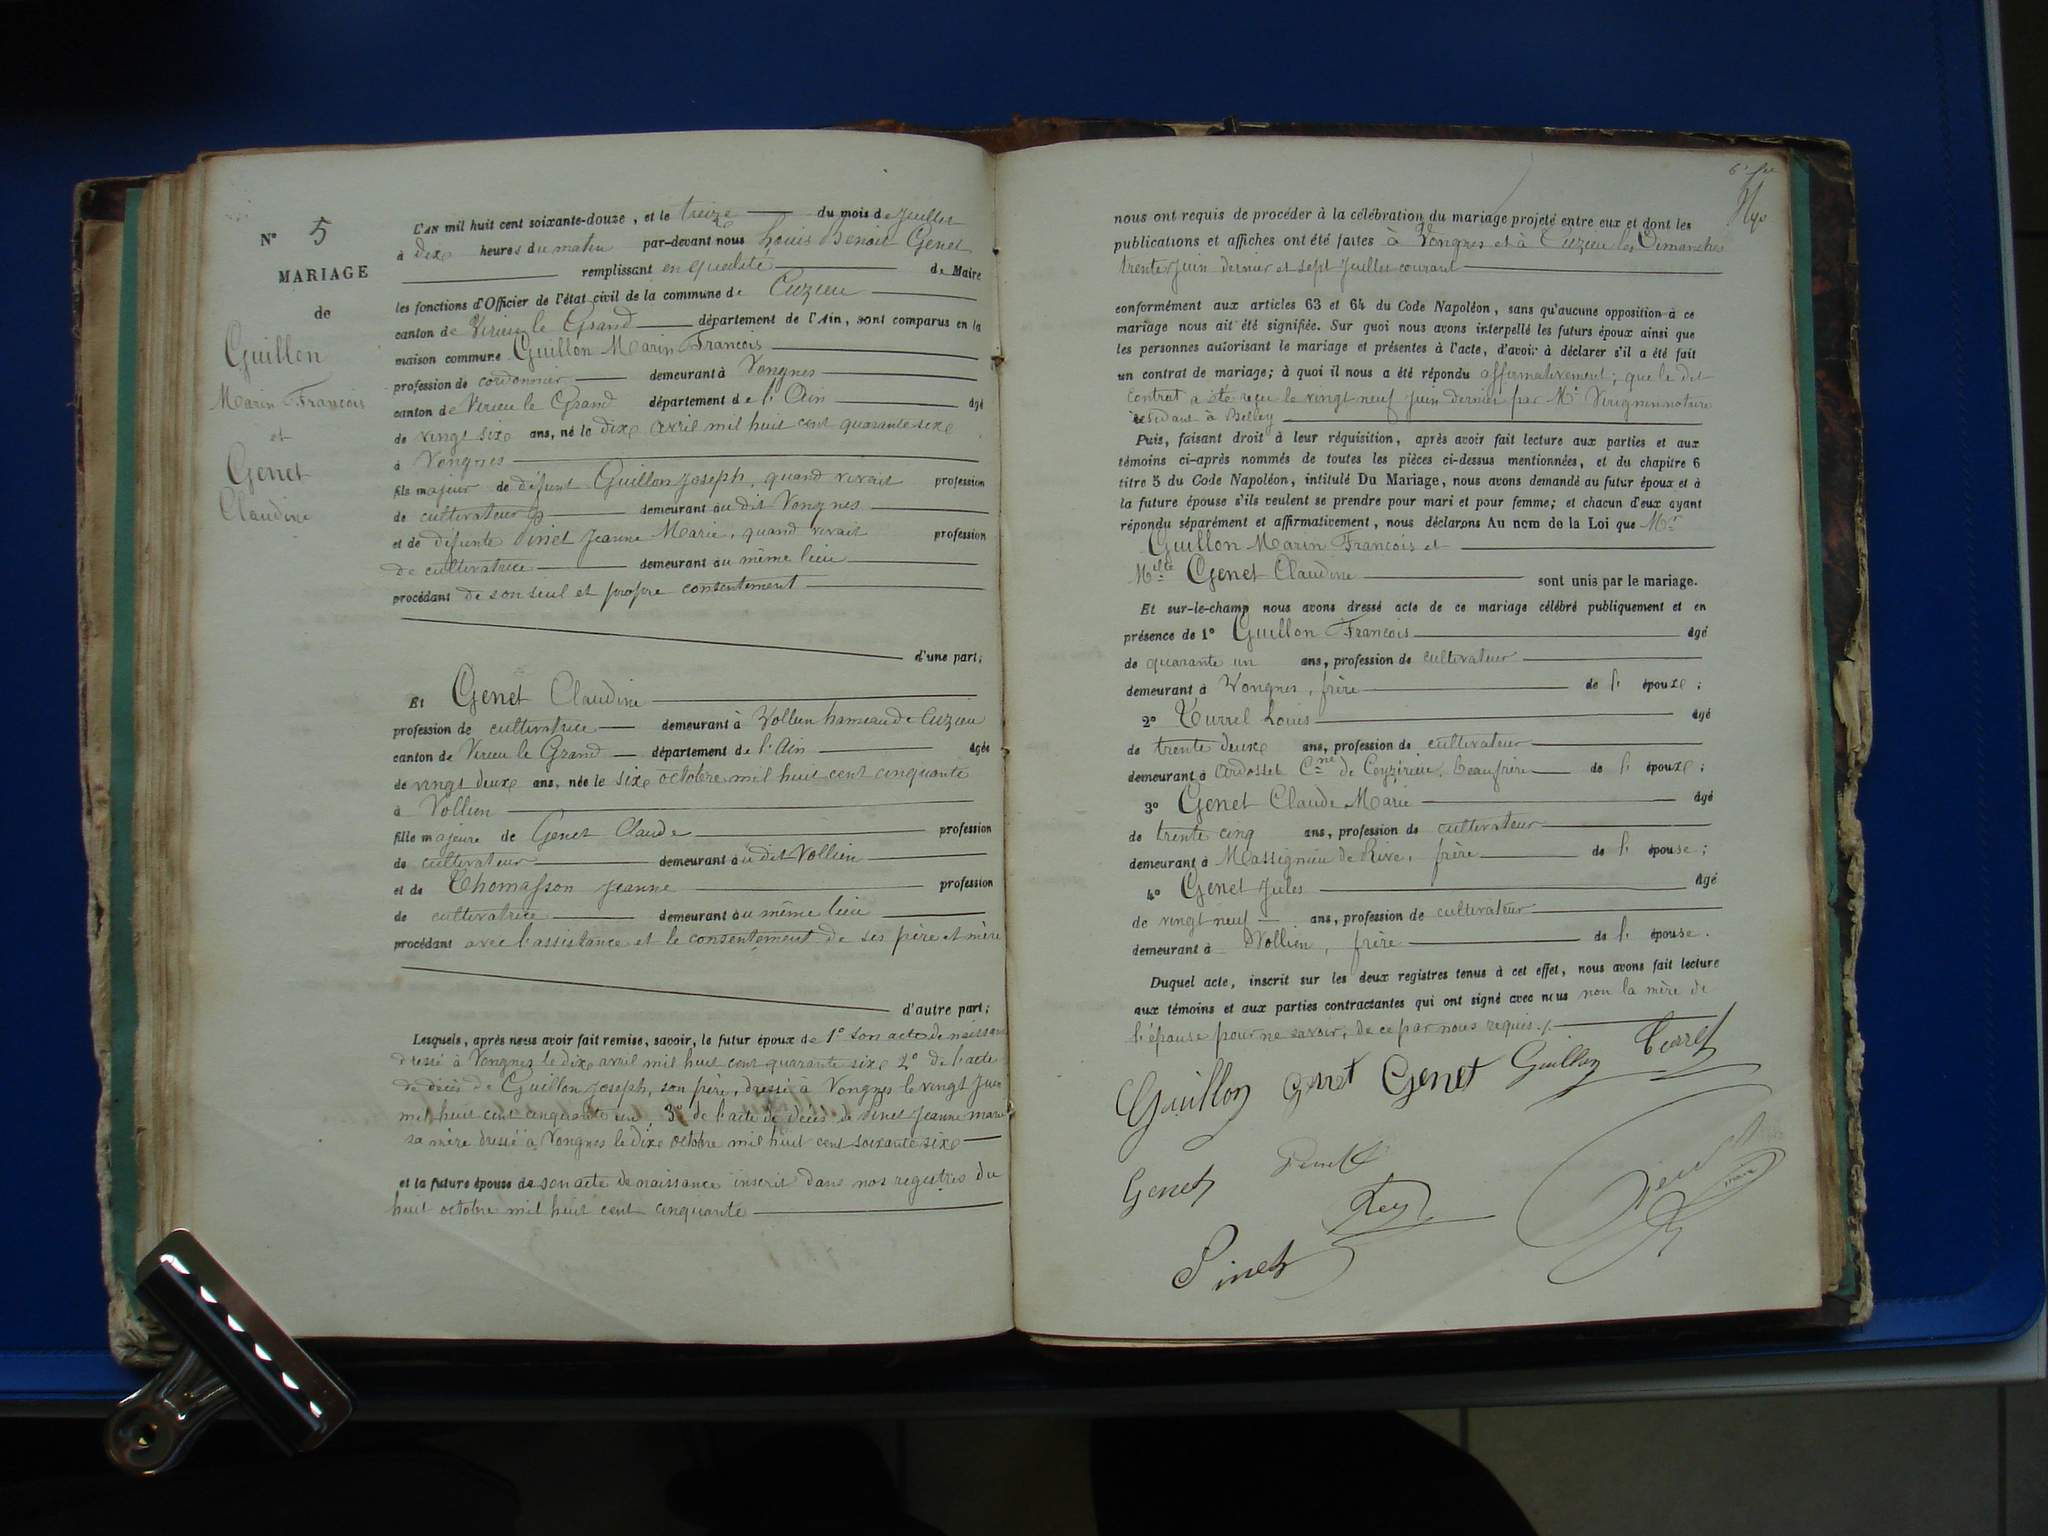 N° 5
MARIAGE
de
Guillon
Marin François
et
Genet
Claudine
L'AN mil huit cent soixante-douze, et le treize du mois de Juillet
à dix heures du matin par-devant nous Louis Benoit Genet
remplissant en qualité de Maire
les fonctions d'Officier de l'état civil de la commune de Cuzieu
canton de Virieu le Grand département de l'Ain, sont comparus en la
maison commune Guillon Marin François
profession de cordonnier demeurant à Vongnes
canton de Virieu le Grand département de l'Ain âgé
de vingt six ans, né le dix avril mil huit cent quarante six
à Vongnes
fils majeur de défunt Guillon Joseph, quand vivait profession
de cultivateur demeurant au dit Vongnes
et de défunte Pinet Jeanne Marie, quand vivait profession
de cultivatrice demeurant au même lieu
procédant de son seul et propre consentement
d'une part;
Et Genet Claudine
profession de cultivatrice demeurant à Vollien hameau de Cuzieu
canton de Virieu le Grand département de l'Ain âgée
de vingt deux ans, née le six octobre mil huit cent cinquante
à Vollien
fille majeure de Genet Claude profession
de cultivateur demeurant au dit Vollien
et de Thomasson Jeanne profession
de cultivatrice demeurant au même lieu
procédant avec l'assistance et le consentement de ses père et mère
d'autre part;
Lesquels, après nous avoir fait remise, savoir, le futur époux de 1° son acte de naissance
dressé à Vongnes le dix avril mil huit cent quarante six 2° de l'acte
de décès de Guillon Joseph, son père, dressé à Vongnes le vingt Juin
mil huit cent cinquante un, 3° de l'acte de décès de Pinet Jeanne Marie
sa mère dressé à Vongnes le dix octobre mil huit cent soixante six
et la future épouse de son acte de naissance inscrit dans nos registres du
huit octobre mil huit cent cinquante
nous ont requis de procéder à la célébration du mariage projeté entre eux et dont les
publications et affiches ont été faites à Vongnes et à Cuzieu les Dimanches
trente Juin dernier et sept Juillet courant
conformément aux articles 63 et 64 du Code Napoléon, sans qu'aucune opposition à ce
mariage nous ait été signifiée. Sur quoi nous avons interpellé les futurs époux ainsi que
les personnes autorisant le mariage et présentes à l'acte, d'avoir à déclarer s'il a été fait
un contrat de mariage; à quoi il nous a été répondu affirmativement; que le dit
contrat a été reçu le vingt neuf Juin dernier par Me notaire
résidant à Belley
Puis, faisant droit à leur réquisition, après avoir fait lecture aux parties et aux
témoins ci-après nommés de toutes les pièces ci-dessus mentionnées, et du chapitre 6
titre 5 du Code Napoléon, intitulé Du Mariage, nous avons demandé au futur époux et à
la future épouse s'ils veulent se prendre pour mari et pour femme; et chacun d'eux ayant
répondu séparément et affirmativement, nous déclarons Au nom de la Loi que Mr
Guillon Marin François et
Melle Genet Claudine sont unis par le mariage.
Et sur-le-champ nous avons dressé acte de ce mariage célébré publiquement et en
présence de 1° Guillon François âgé
de quarante un ans, profession de cultivateur
demeurant à Vongnes, frère de l'époux;
2° Turrel Louis âgé
de trente deux ans, profession de cultivateur
demeurant à Ardosset Cne de Ceyzérieu, beau frère de l'époux;
3° Genet Claude Marie âgé
de trente cinq ans, profession de cultivateur
demeurant à Massignieu de Rive, frère de l'épouse;
4° Genet Jules âgé
de vingt neuf ans, profession de cultivateur
demeurant à Vollien, frère de l'épouse.
Duquel acte, inscrit sur les deux registres tenus à cet effet, nous avons fait lecture
aux témoins et aux parties contractantes qui ont signé avec nous non la mère de
l'épouse pour ne savoir, de ce par nous requis.
Guillon Genet Genet Guillon Turrel
Genet
Rey
Pinet
maire